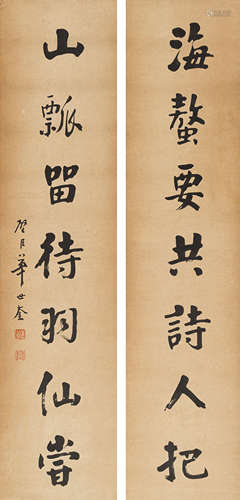 海螯要共詩人把
山瓢留待羽仙嘗
華世奎